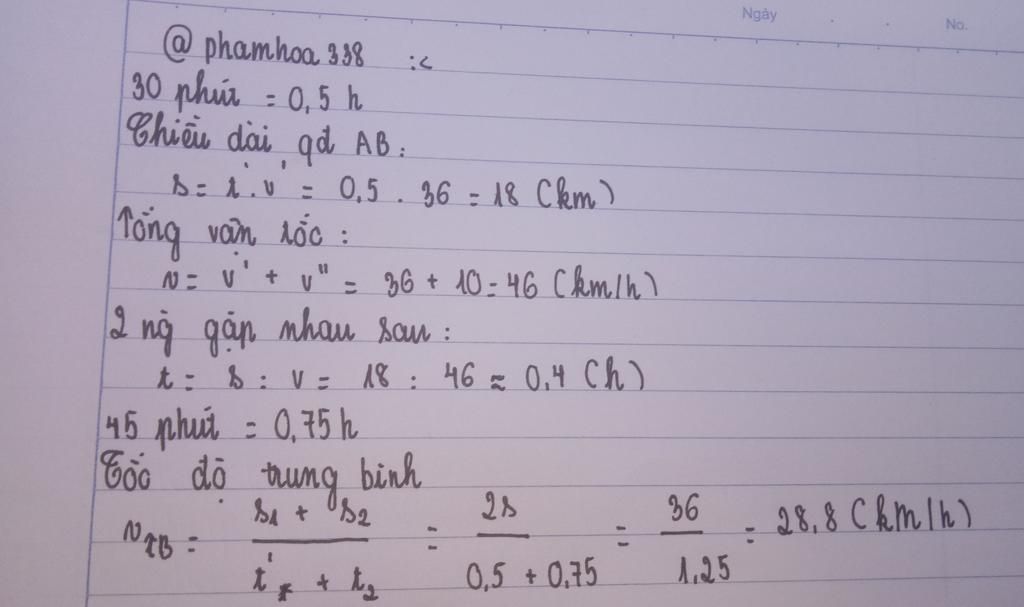 Ngày No.
@phamhoa338 :<
30 phút = 0,5 h
Chiều dài qđ AB:
s = t'.v' = 0,5 . 36 = 18 (km)
Tổng vận tốc :
v = v' + v" = 36 + 10 = 46 (km/h)
2 ng gặp nhau sau :
t = s : v = 18 : 46 ≈ 0,4 (h)
45 phút = 0,75 h
Tốc độ trung bình
vTB = s1 + s2 / t' + t2 = 2s / 0,5 + 0,75 = 36 / 1,25 = 28,8 (km/h)